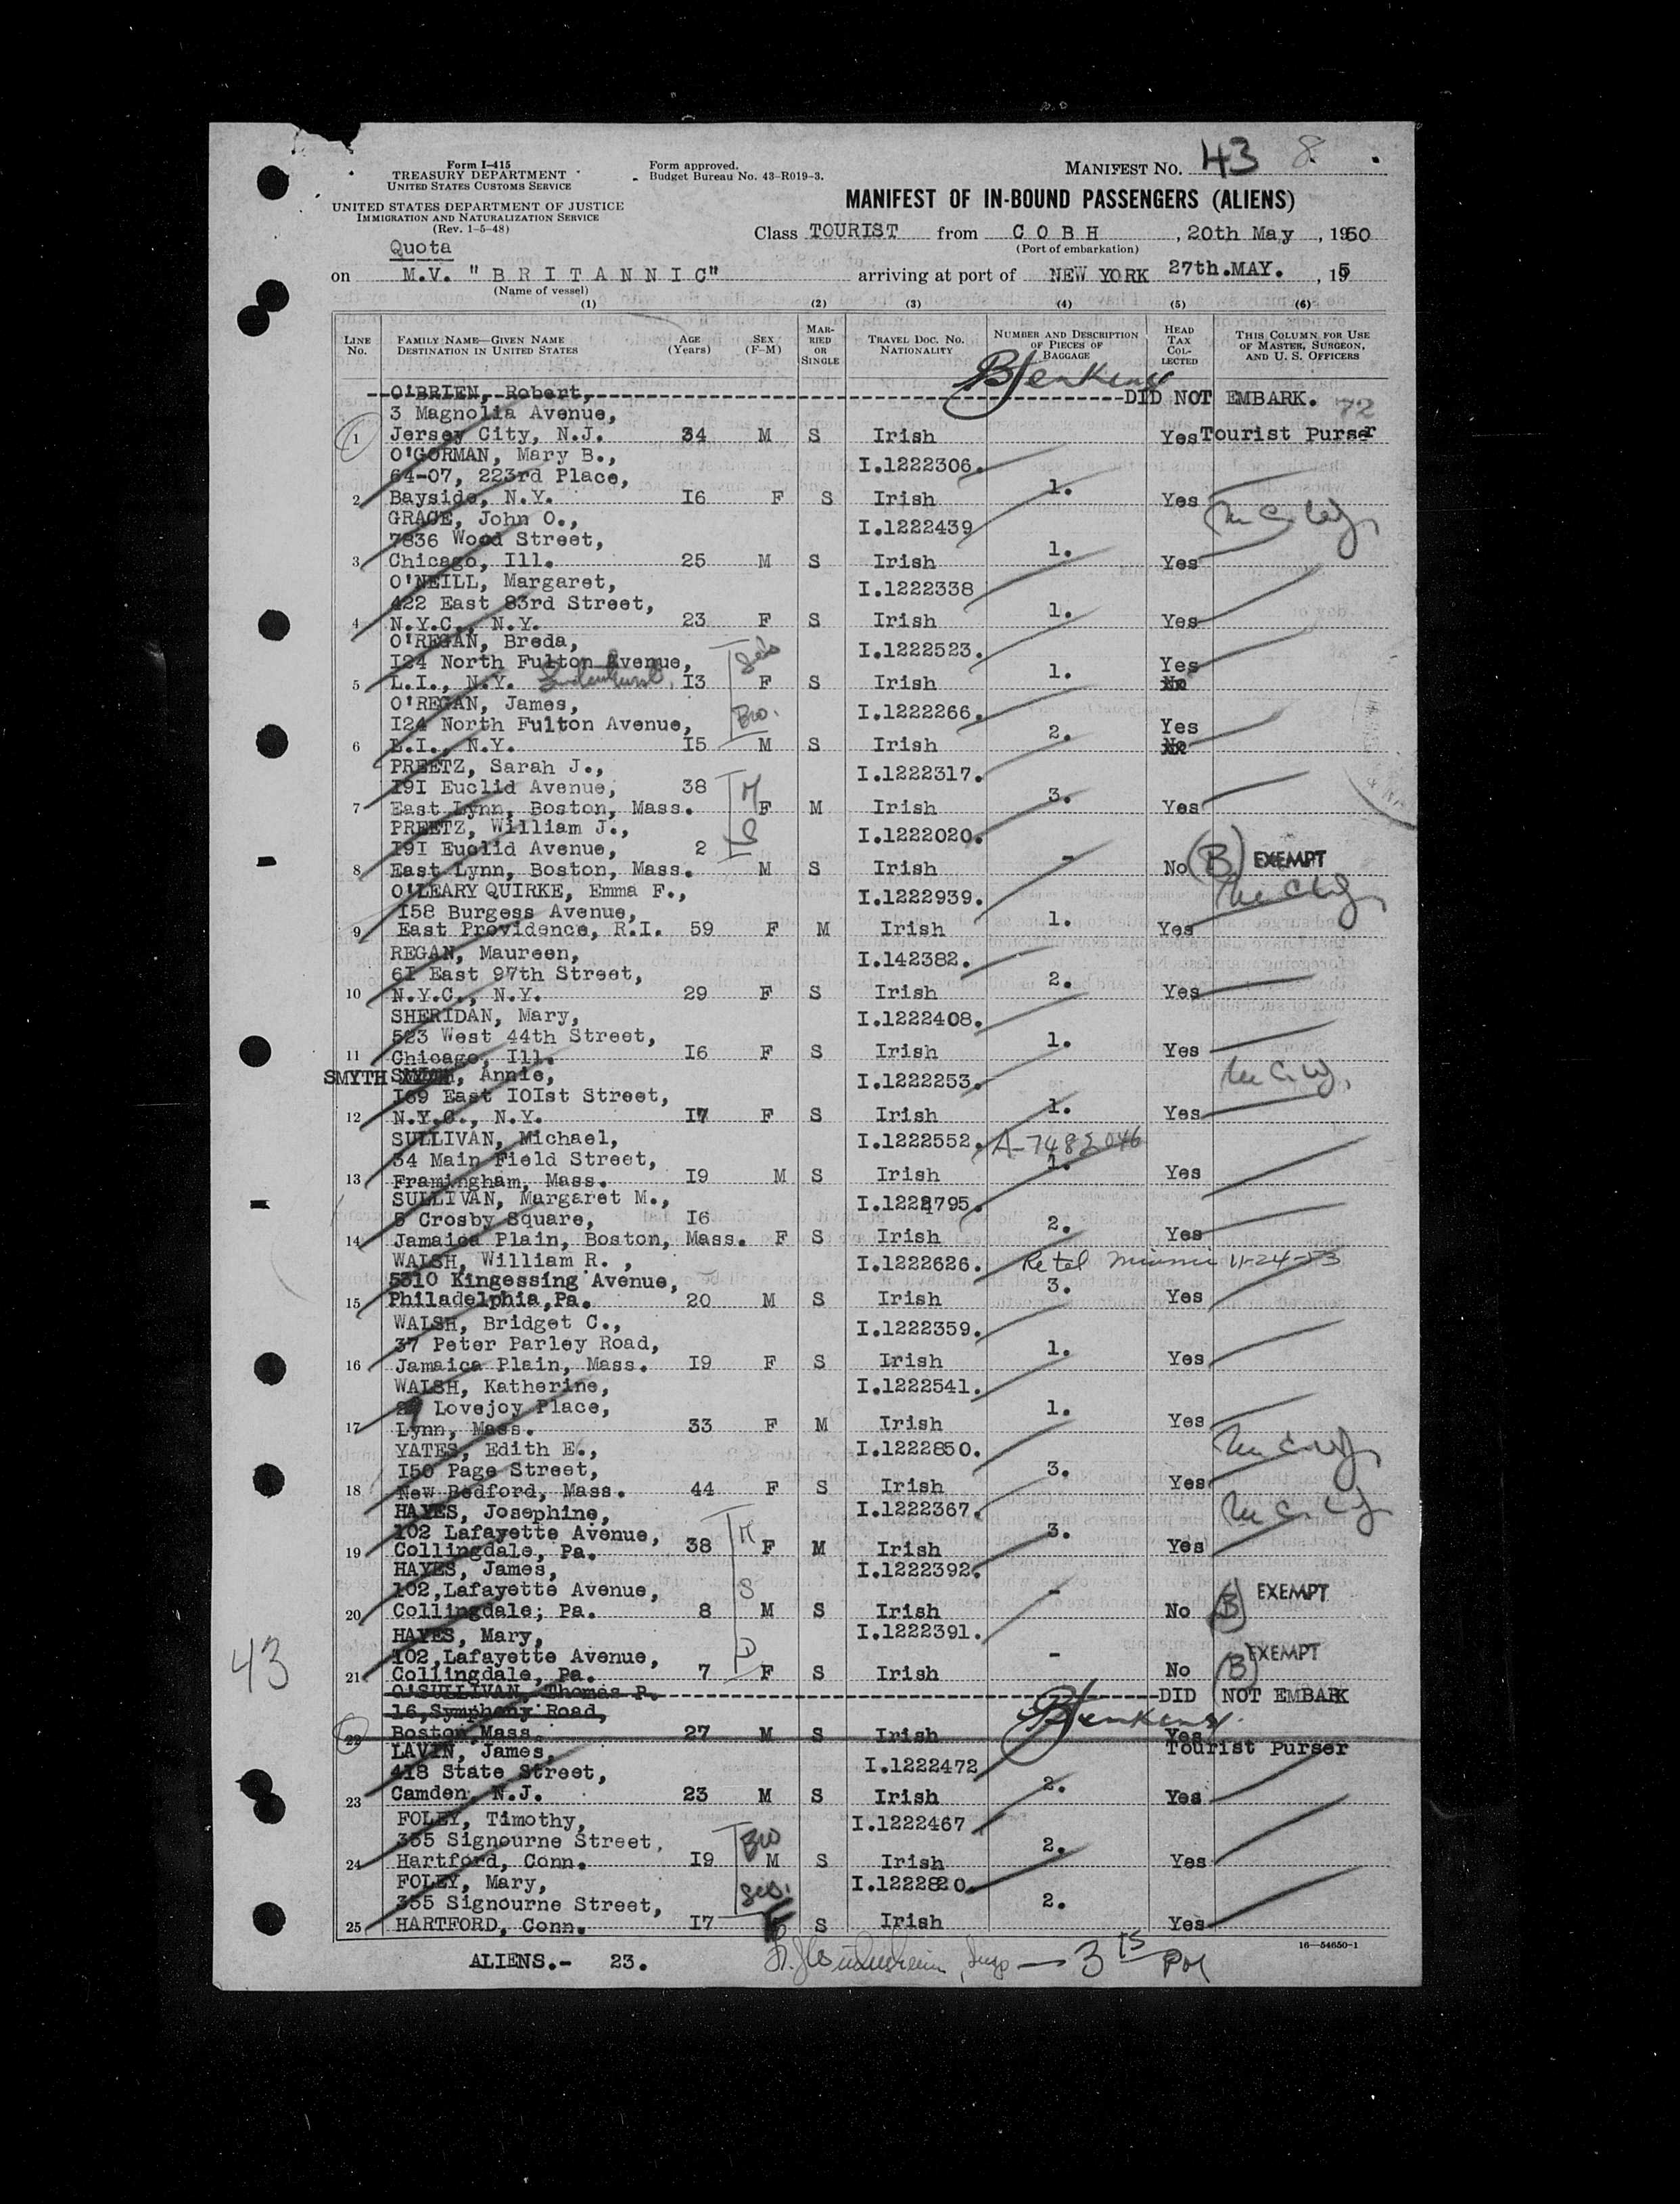 Form I-415
TREASURY DEPARTMENT
UNITED STATES CUSTOMS SERVICE
UNITED STATES DEPARTMENT OF JUSTICE
IMMIGRATION AND NATURALIZATION SERVICE
(Rev. 1-5-48)
Form approved.
Budget Bureau No. 43-R019-3.
MANIFEST NO. 43 8
MANIFEST OF IN-BOUND PASSENGERS (ALIENS)
Quota
Class TOURIST from COBH, 20th May, 1950
(Port of embarkation)
on M.V. "BRITANNIC" arriving at port of NEW YORK 27th.MAY., 195
(Name of vessel)
(1) (2) (3) (4) (5) (6)
LINE NO. FAMILY NAME—GIVEN NAME DESTINATION IN UNITED STATES AGE (Years) SEX (F-M) MARRIED OR SINGLE TRAVEL DOC. NO. NATIONALITY NUMBER AND DESCRIPTION OF PIECES OF BAGGAGE HEAD TAX COLLECTED THIS COLUMN FOR USE OF MASTER, SURGEON, AND U. S. OFFICERS
O'BRIEN, Robert, BJenkins DID NOT EMBARK. 72
3 Magnolia Avenue,
1 Jersey City, N.J. 34 M S Irish Yes Tourist Purser
O'GORMAN, Mary B., I.1222306.
64-07, 223rd Place,
2 Bayside, N.Y. I6 F S Irish 1. Yes
GRACE, John O., I.1222439
7836 Wood Street,
3 Chicago, Ill. 25 M S Irish 1. Yes
O'NEILL, Margaret, I.1222338
422 East 83rd Street,
4 N.Y.C., N.Y. 23 F S Irish 1. Yes
O'REGAN, Breda, I.1222523.
I24 North Fulton Avenue, Yes
5 L.I., N.Y. Lindenhurst, I3 F S Irish 1. No
O'REGAN, James, I.1222266.
I24 North Fulton Avenue, Bro. Yes
6 L.I., N.Y. I5 M S Irish 2. No
PREETZ, Sarah J., I.1222317.
I9I Euclid Avenue, 38 M
7 East Lynn, Boston, Mass. F M Irish 3. Yes
PREETZ, William J., I.1222020.
I9I Euclid Avenue, 2 S
8 East Lynn, Boston, Mass. M S Irish - No (B) EXEMPT
O'LEARY QUIRKE, Emma F., I.1222939.
I58 Burgess Avenue,
9 East Providence, R.I. 59 F M Irish 1. Yes
REGAN, Maureen, I.142382.
6I East 97th Street,
10 N.Y.C., N.Y. 29 F S Irish 2. Yes
SHERIDAN, Mary, I.1222408.
523 West 44th Street,
11 Chicago, Ill. I6 F S Irish 1. Yes
SMYTH, Annie, I.1222253.
I69 East I0Ist Street,
12 N.Y.C., N.Y. I7 F S Irish 1. Yes
SULLIVAN, Michael, I.1222552.
34 Main Field Street,
13 Framingham, Mass. I9 M S Irish 1. Yes
SULLIVAN, Margaret M.,
5 Crosby Square, I6
14 Jamaica Plain, Boston, Mass. F S Irish 2. Yes
WALSH, William R., I.1222626. 11-24-53
5310 Kingessing Avenue,
15 Philadelphia,Pa. 20 M S Irish 3. Yes
WALSH, Bridget C., I.1222359.
37 Peter Parley Road,
16 Jamaica Plain, Mass. I9 F S Irish 1. Yes
WALSH, Katherine, I.1222541.
Lovejoy Place,
17 Lynn, Mass. 33 F M Irish 1. Yes
YATES, Edith E., I.1222850.
I50 Page Street,
18 New Bedford, Mass. 44 F S Irish 3. Yes
HAYES, Josephine, I.1222367.
102 Lafayette Avenue, M
19 Collingdale, Pa. 38 F M Irish 3. Yes
HAYES, James, I.1222392.
102,Lafayette Avenue, S
20 Collingdale; Pa. 8 M S Irish - No (B) EXEMPT
HAYES, Mary, I.1222391.
102,Lafayette Avenue, D
21 Collingdale, Pa. 7 F S Irish - No (B) EXEMPT
43
O'SULLIVAN, Thomas P. DID NOT EMBARK
16,Symphony Road, BJenkins.
22 Boston,Mass. 27 M S Irish Yes
Tourist Purser
LAVIN, James, I.1222472
418 State Street,
23 Camden, N.J. 23 M S Irish 2. Yes
FOLEY, Timothy, I.1222467
355 Signourne Street, Bro
24 Hartford, Conn. I9 M S Irish 2. Yes
FOLEY, Mary, I.1222820.
355 Signourne Street,
25 HARTFORD, Conn. I7 F S Irish 2. Yes
16—54650-1
ALIENS.- 23. 3 15 PM